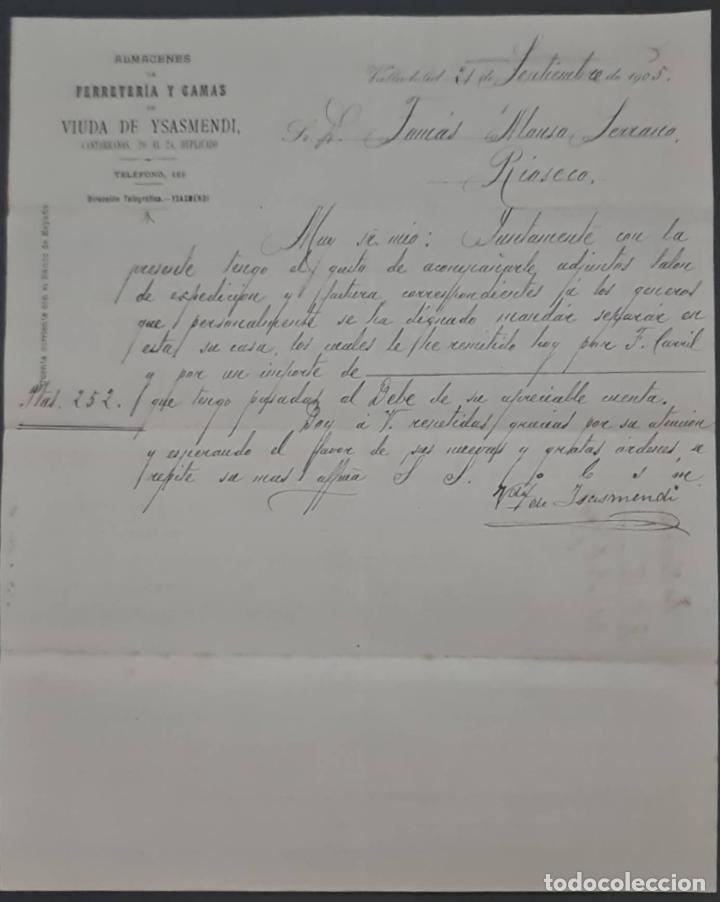 ALMACENES
DE
FERRETERÍA Y CAMAS
DE
VIUDA DE YSASMENDI,
CANTARRANAS, 20 AL 24, DUPLICADO
TELÉFONO, 168
Dirección Telegráfica.—YSASMENDI
Cuenta corriente con el Banco de España
Valladolid 21 de Septiembre de 1905.
Sr. D. Tomás Alonso Serrano,
Rioseco.
Muy sr. mio: Juntamente con la
presente tengo el gusto de acompañarle adjuntos talon
de expedición y factura correspondientes á los géneros
que personalmente se ha dignado mandar separar en
esta su casa, los cuales le he remitido hoy por F. Carril
y por un importe de
Ptas. 252. que tengo pasadas al Debe de su apreciable cuenta.
Doy á V. repetidas gracias por su atención
y esperando el favor de sus nuevas y gratas órdenes, se
repite su mas affma S. S.
Vda de Isasmendi
todocoleccion.net